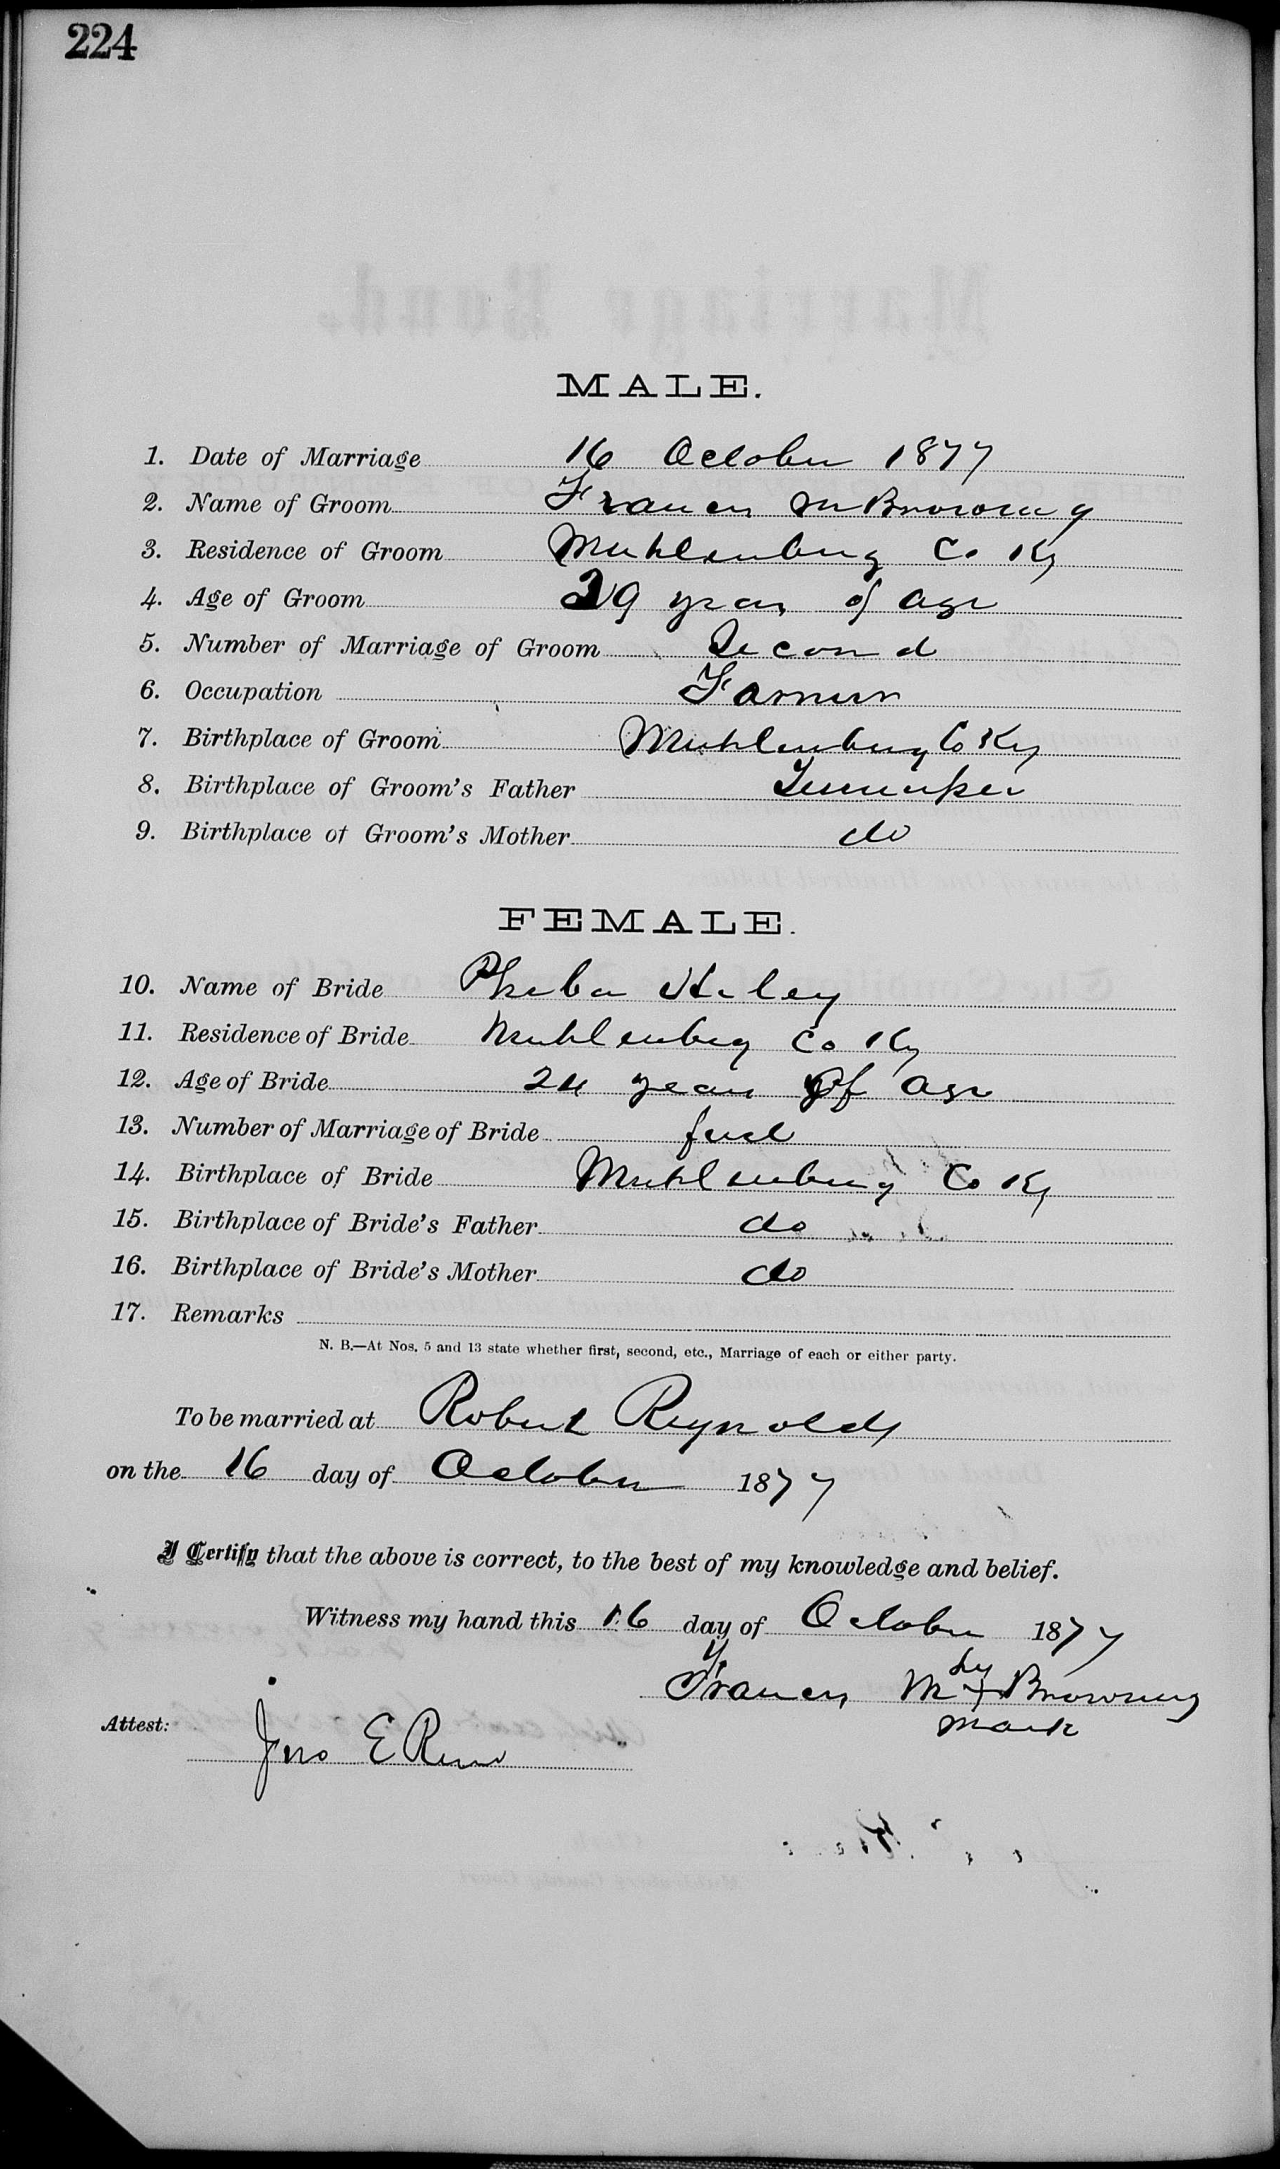 224
MALE.
1. Date of Marriage 16 October 1877
2. Name of Groom Francis M Browning
3. Residence of Groom Muhlenburg Co Ky
4. Age of Groom 29 years of age
5. Number of Marriage of Groom Second
6. Occupation Farmer
7. Birthplace of Groom Muhlenburg Co Ky
8. Birthplace of Groom's Father Tennessee
9. Birthplace of Groom's Mother do
FEMALE.
10. Name of Bride Pheba
11. Residence of Bride Muhlenburg Co Ky
12. Age of Bride 24 years of age
13. Number of Marriage of Bride first
14. Birthplace of Bride Muhlenburg Co Ky
15. Birthplace of Bride's Father do
16. Birthplace of Bride's Mother do
17. Remarks
N. B.—At Nos. 5 and 13 state whether first, second, etc., Marriage of each or either party.
To be married at Robert Reynolds
on the 16 day of October 1877
I Certify that the above is correct, to the best of my knowledge and belief.
Witness my hand this 16 day of October 1877
his
Francis M x Browning
mark
Attest:
Jno E Reno